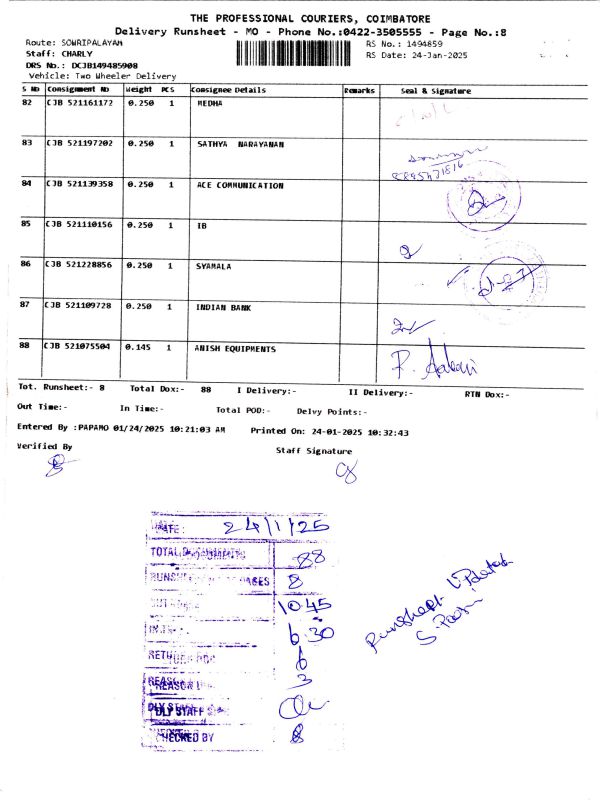 THE PROFESSIONAL COURIERS, COIMBATORE
Delivery Runsheet - MO - Phone No.:0422-3505555 - Page No.:8
Route: SOWRIPALAYAM RS No.: 1494859
Staff: CHARLY RS Date: 24-Jan-2025
DRS No.: DCJB149485908
Vehicle: Two Wheeler Delivery
S NO Consignment NO Weight PCS Consignee Details Remarks Seal & Signature
82 CJB 521161172 0.250 1 MEDHA
83 CJB 521197202 0.250 1 SATHYA NARAYANAN
84 CJB 521139358 0.250 1 ACE COMMUNICATION
85 CJB 521110156 0.250 1 IB
86 CJB 521228856 0.250 1 SYAMALA
87 CJB 521109728 0.250 1 INDIAN BANK
88 CJB 521075504 0.145 1 ANISH EQUIPMENTS
Tot. Runsheet:- 8 Total Dox:- 88 I Delivery:- II Delivery:- RTN Dox:-
Out Time:- In Time:- Total POD:- Delvy Points:-
Entered By :PAPAMO 01/24/2025 10:21:03 AM Printed On: 24-01-2025 10:32:43
Verified By Staff Signature
DATE: 24/1/25
TOTAL 88
8
10.45
6.30
6
REASON 3
DLY STAFF
CHECKED BY
Runsheet